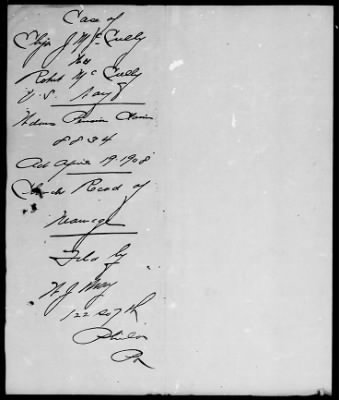 Case of
Eliza J McCully
Robt McCully
U.S. Navy
Widows Pension Claim
8834
Act April 19 1908
Church Record of
Marriage
Filed by
W J
122 So 7th
Phila
Pa